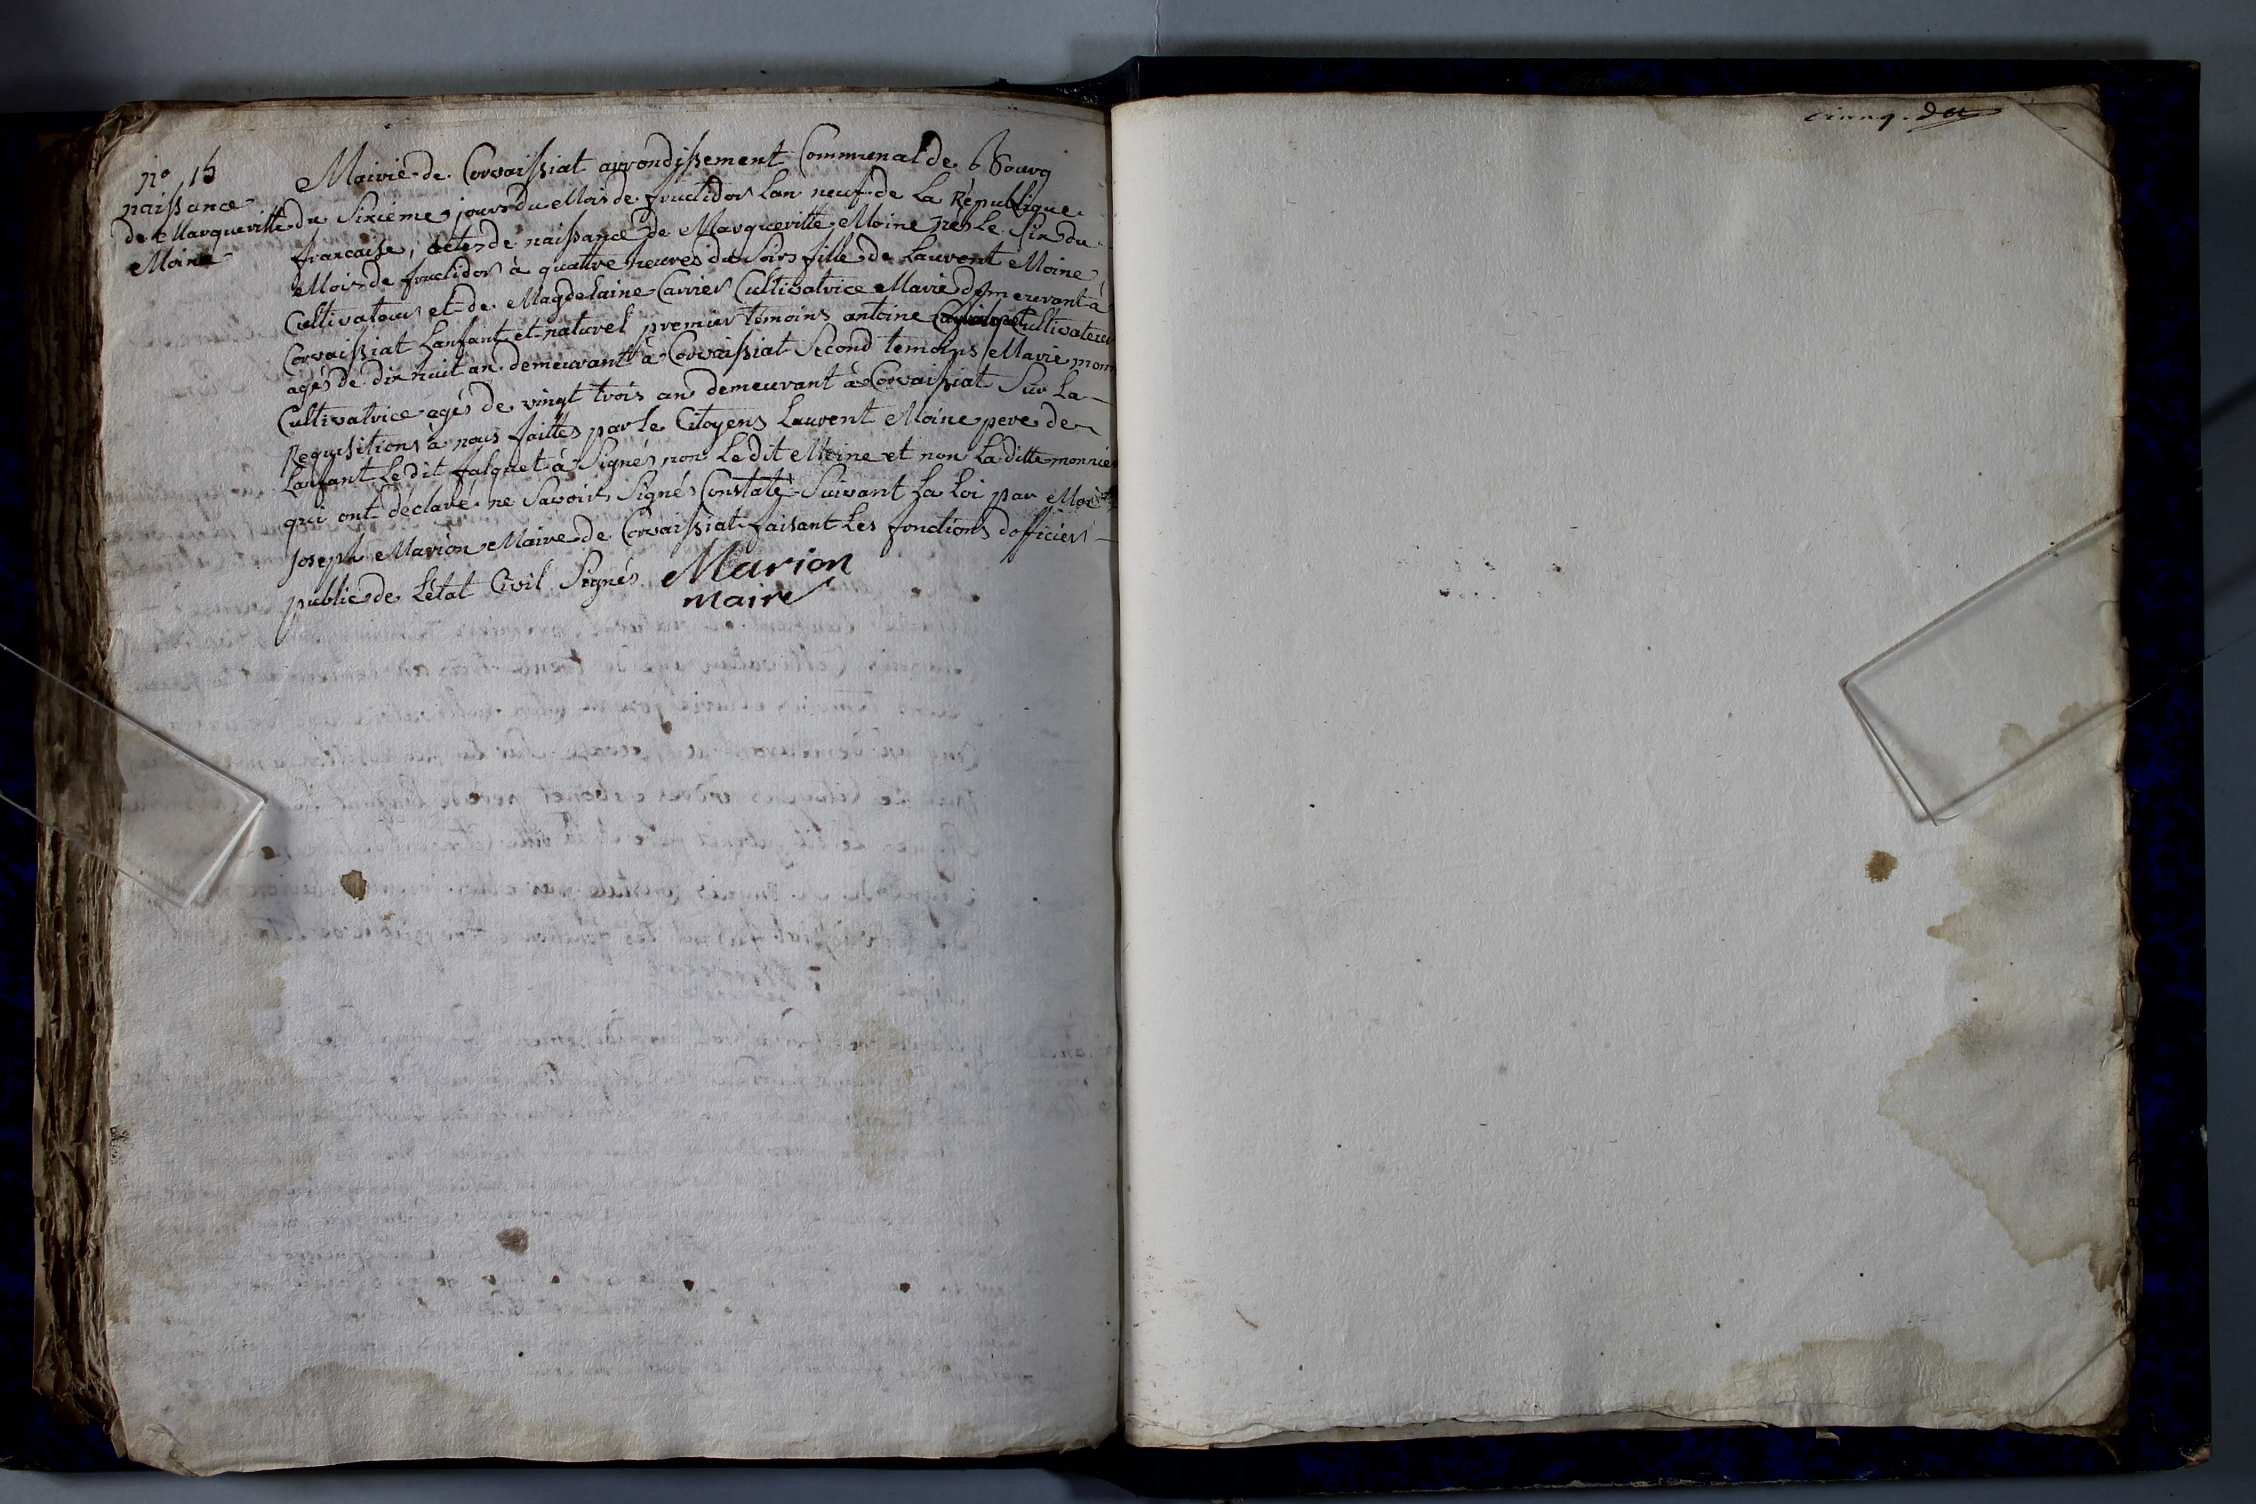 cinq. de
n.° 15
naissance
de Marqueritte
Moine
Mairie de Corvaissiat arrondissement Communal de Bourg
du Sixieme jour du Mois de fructidor Lan neuf de La République
francaise, acte de naissance de Marqueritte Moine née Le Six du
Mois de fructidor à quattre heures du Soirs fille de Laurent Moine
Cultivateur et de Magdelaine Carrier Cultivatrice Marie demeurant à
Corvaissiat Lanfant et naturel premier temoins antoine Cultivateur
agés de dix huit an demeurant à Corvaissiat Second temoins Marie
Cultivatrice agés de vingt trois an demeurant à Corvaissiat Sur La
Requisitions à nous faittes par le Citoyens Laurent Moine pere de
Lanfant Le dit falquet à Signés non Le dit Moine et non La ditte monnier
qui ont déclaré ne Savoir Signés Constaté Suivant La Loi par Moi
Joseph Marion Maire de Corvaissiat faisant Les fonctions dofficier
public de Létat Civil Signés Marion
maire